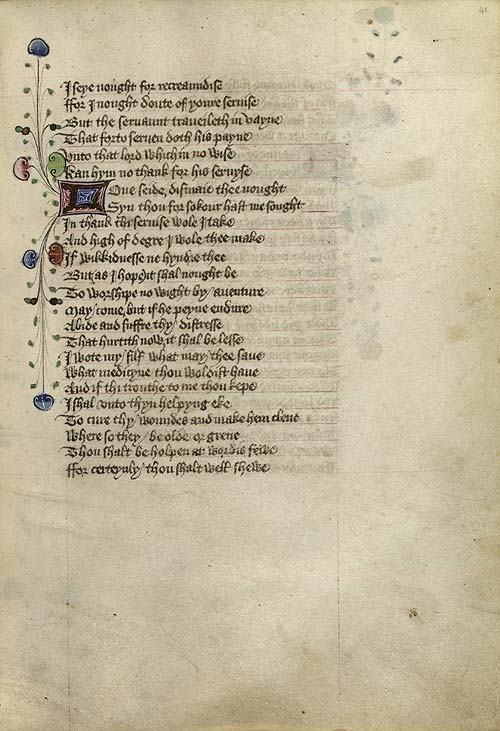 41
I seye nought for recreaundise
ffor I nought doute of youre seruise
But the seruaunt traueileth in vayne
That forto seruen doth his payne
Vnto that lord which in no wise
Kan hym no thank for his seruyse
Oue seide, dismaie thee nought
Syn thou for sokour hast me sought
In thank thi seruise wole I take
And high of degre I wole thee make
If wikkidnesse ne hyndre thee
But as I hope it shal nought be
To worshipe no wight by auenture
may come, but if he peyne endure
Abide and suffre thy distresse
That hurtith now, it shal be lesse
I wote my silf what may thee saue
What medicyne thou woldist haue
And if thi trouthe to me thou kepe
I shal vnto thyn helpyng eke
To cure thy woundes and make hem clene
Where so they be olde or grene
Thou shalt be holpen at wordis fewe
ffor certeynly thou shalt well shewe